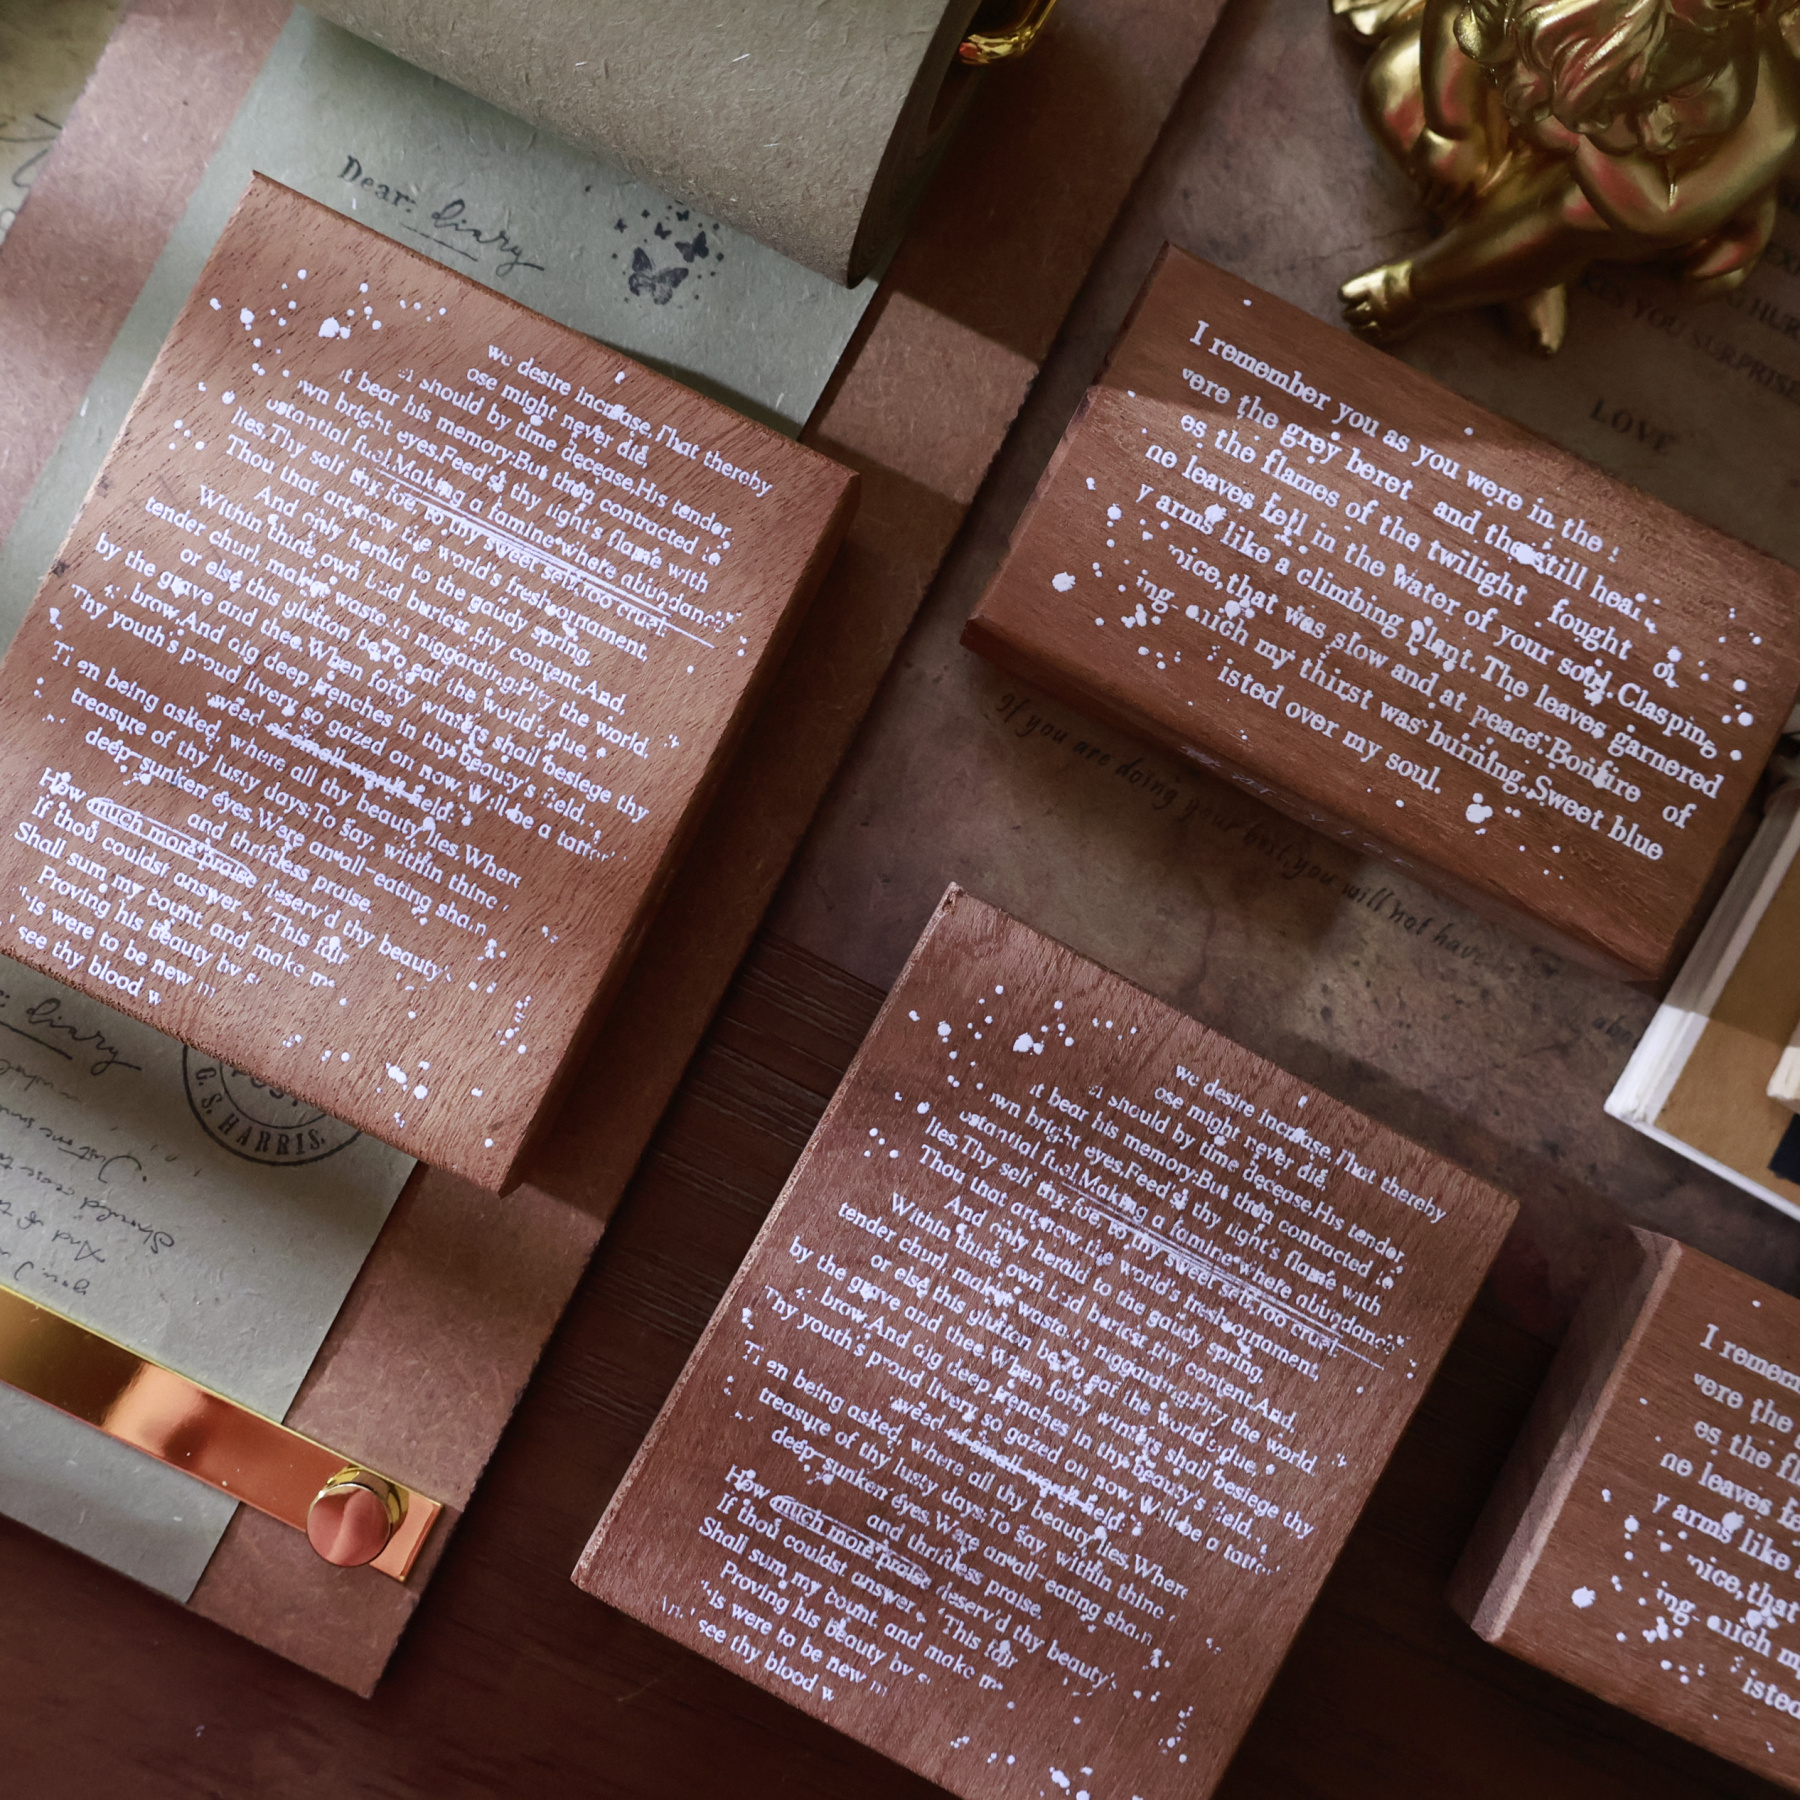 Dear: diary
we desire increase,That thereby
ose might never die,
should by time decease,His tender
it bear his memory:But thou contracted to
own bright eyes,Feed'st thy light's flame with
ustantial fuel,Making a famine where abundanc
lies,Thy self thy foe, to thy sweet self too cruel:
Thou that art now the world's fresh ornament,
And only herald to the gaudy spring,
Within thine own bud buriest thy content,And,
tender churl, makest waste in niggarding:Pity the world,
or else this glutton be,To eat the world's due,
by the grave and thee.When forty winters shall besiege thy
brow,And dig deep trenches in thy beauty's field,
Thy youth's proud livery, so gazed on now, Will be a tatter
weed of small worth held:
Then being asked, where all thy beauty lies, Where
treasure of thy lusty days;To say, within thine
deep-sunken eyes,Were an all-eating sham
and thriftless praise.
How much more praise deserv'd thy beauty's
If thou couldst answer This fair
Shall sum my count, and make m
Proving his beauty by s
is were to be new m
see thy blood w
I remember you as you were in the
vere the grey beret and the still hear
es the flames of the twilight fought o
ne leaves fell in the water of your soul.Clasping
y arms like a climbing plant.The leaves garnered
oice,that was slow and at peace.Bonfire of
ing which my thirst was burning.Sweet blue
isted over my soul.
LOVE
If you are doing your best,you will not have
diary
G. S. HARRIS.
we desire increase,That thereby
ose might never die,
should by time decease,His tender
it bear his memory:But thou contracted to
own bright eyes,Feed'st thy light's flame with
ustantial fuel,Making a famine where abundanc
lies,Thy self thy foe, to thy sweet self too cruel:
Thou that art now the world's fresh ornament,
And only herald to the gaudy spring,
Within thine own bud buriest thy content,And,
tender churl, makest waste in niggarding:Pity the world,
or else this glutton be,To eat the world's due,
by the grave and thee.When forty winters shall besiege thy
brow,And dig deep trenches in thy beauty's field,
Thy youth's proud livery, so gazed on now, Will be a tatter
weed of small worth held:
Then being asked, where all thy beauty lies, Where
treasure of thy lusty days;To say, within thine
deep-sunken eyes,Were an all-eating sham
and thriftless praise.
How much more praise deserv'd thy beauty's
If thou couldst answer This fair
Shall sum my count, and make m
Proving his beauty by s
is were to be new m
see thy blood w
I remem
vere the
es the fl
ne leaves fe
y arms like
oice,that
ing which m
isted